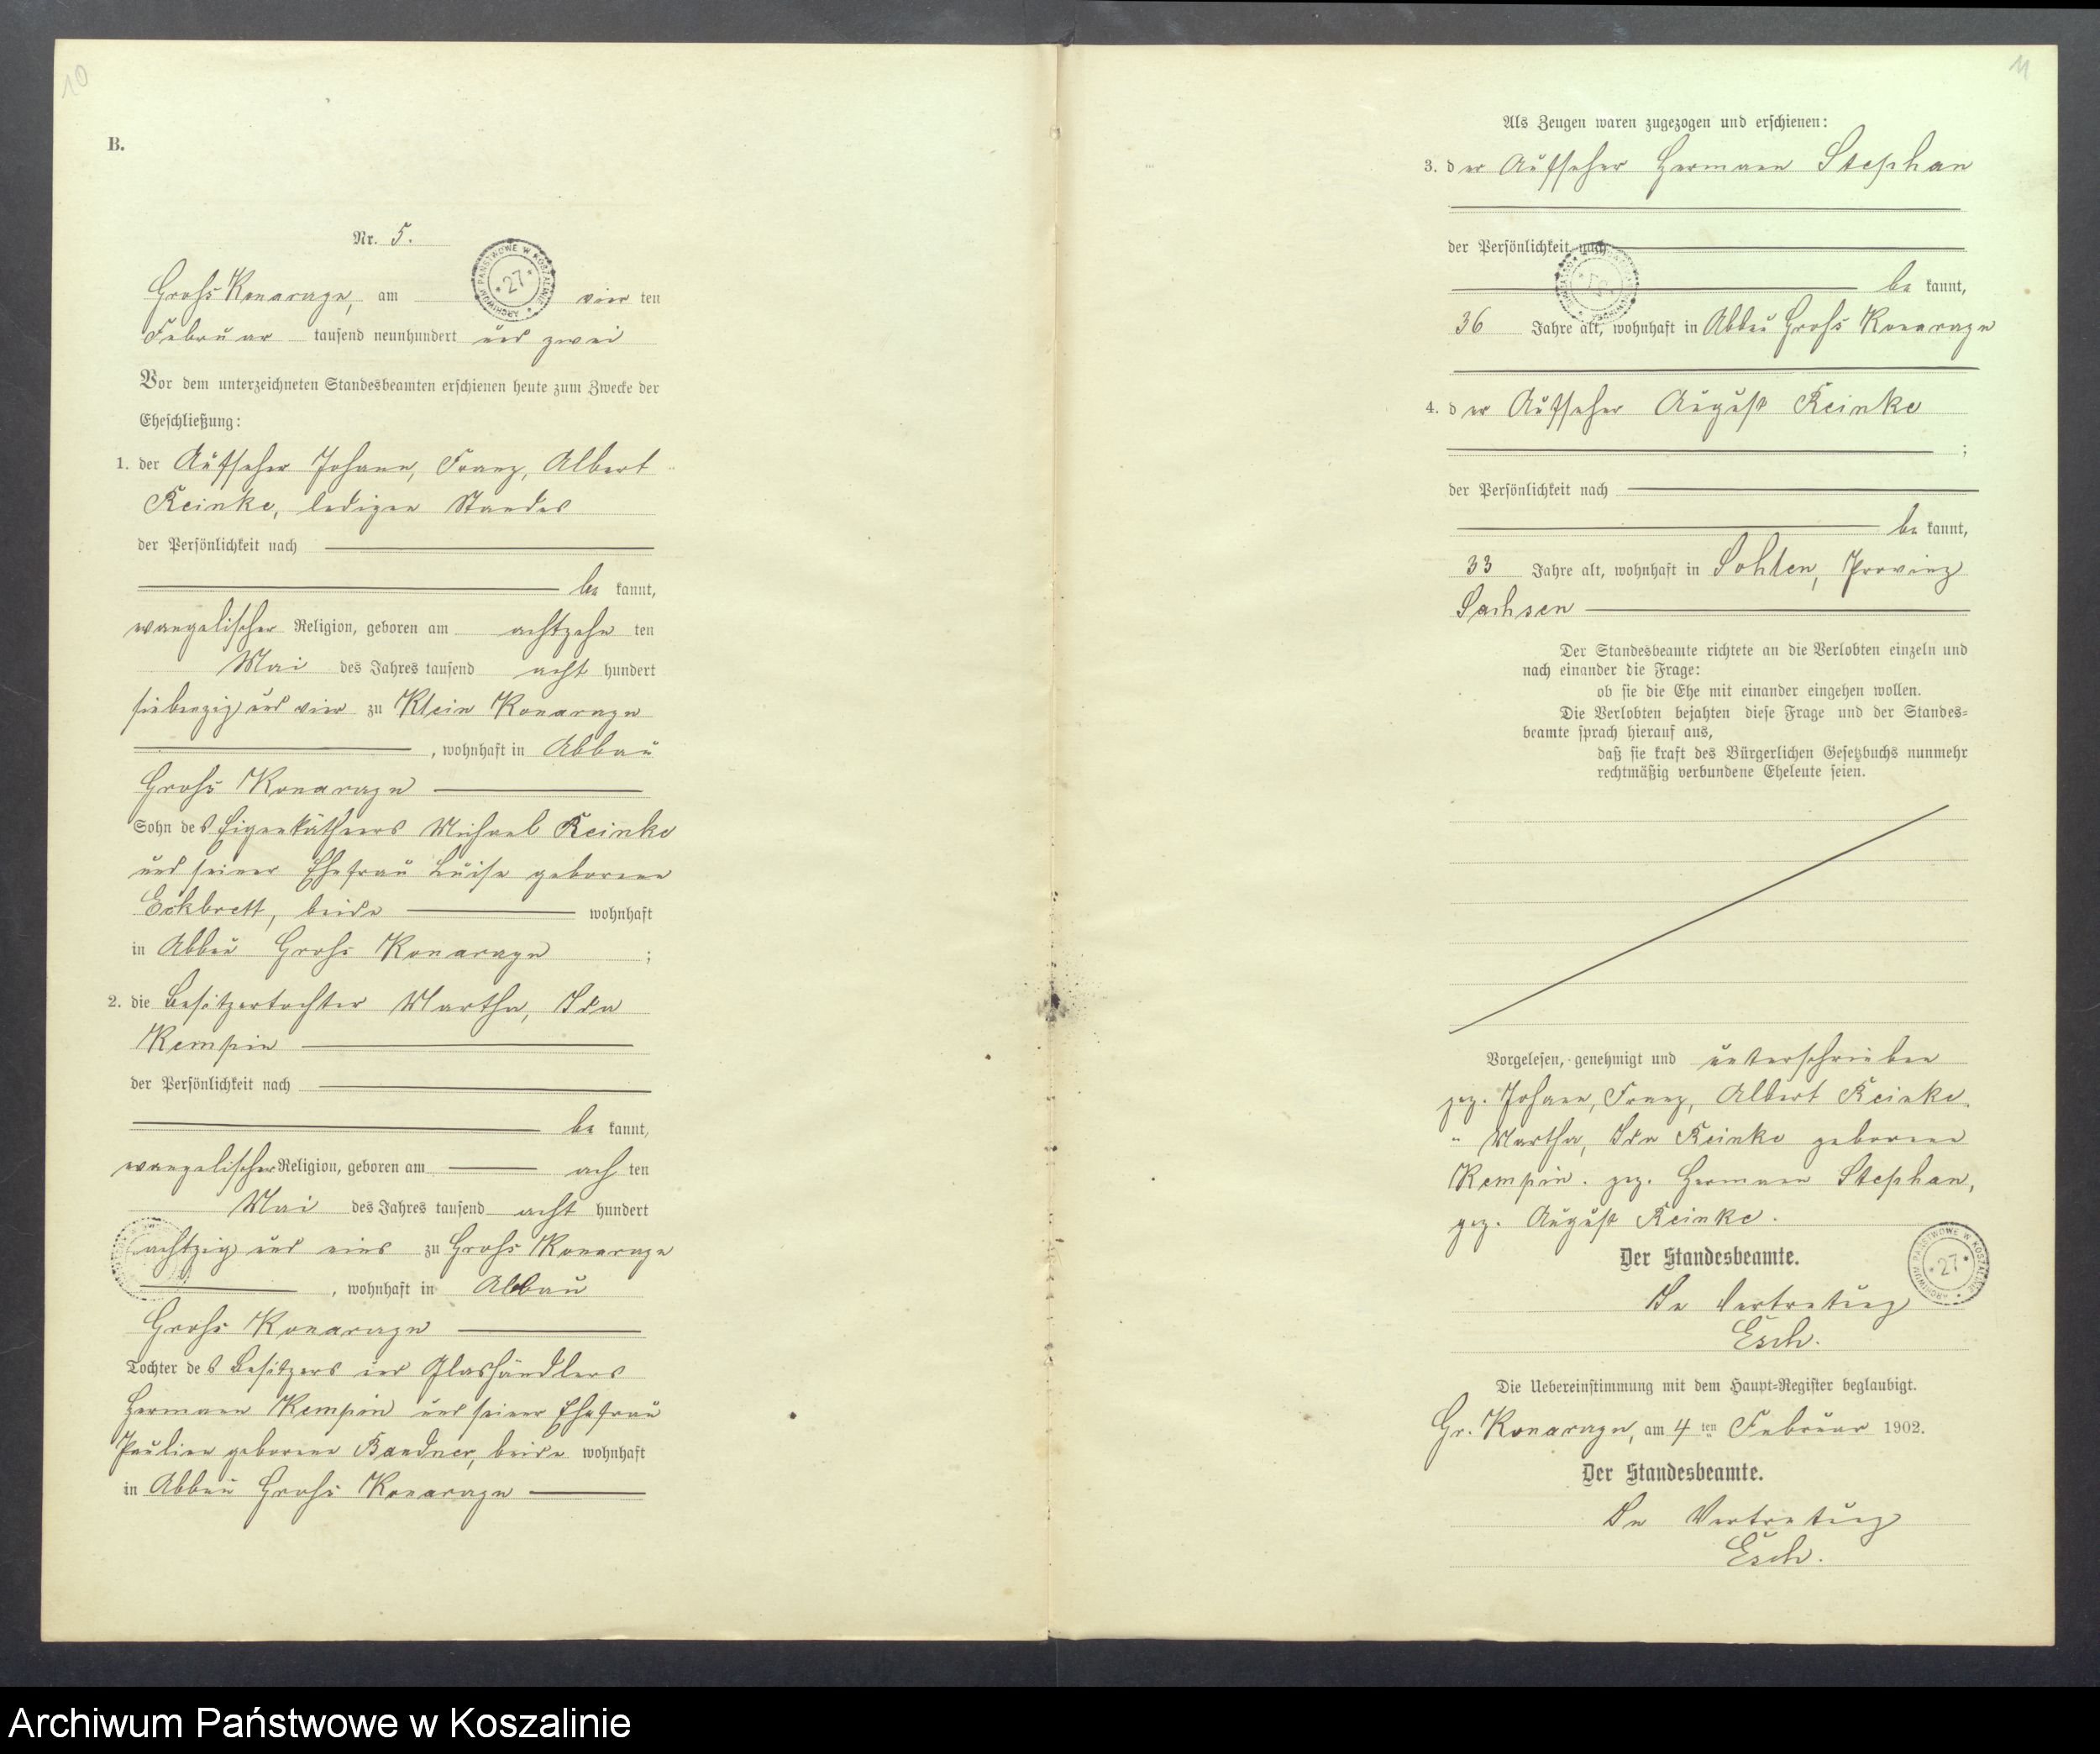 10
B.
Nr. 5.
ARCHIWUM PAŃSTWOWE W KOSZALINIE * 27 *
Groß Konarzyn, am vierten
Februar tausend neunhundert und zwei
Vor dem unterzeichneten Standesbeamten erschienen heute zum Zwecke der
Eheschließung:
1. der Aufseher Johann, Franz, Albert
Reinke, ledigen Standes
der Persönlichkeit nach
be kannt,
evangelischer Religion, geboren am achtzehn ten
Mai des Jahres tausend acht hundert
siebenzig und vier zu Klein Konarzyn
, wohnhaft in Abbau
Groß Konarzyn
Sohn des Eigenkäthners Michael Reinke
und seiner Ehefrau Luise geborene
Eckbrett, beide wohnhaft
in Abbau Groß Konarzyn ;
2. die Besitzertochter Martha, Ida
Kempin
der Persönlichkeit nach
be kannt,
evangelischer Religion, geboren am ach ten
Mai des Jahres tausend acht hundert
achtzig und eins zu Groß Konarzyn
, wohnhaft in Abbau
Groß Konarzyn
Tochter des Besitzers und Glashändlers
Hermann Kempin und seiner Ehefrau
Pauline geborene Bandner, beide wohnhaft
in Abbau Groß Konarzyn
11
Als Zeugen waren zugezogen und erschienen:
3. der Aufseher Hermann Stephan
der Persönlichkeit nach
be kannt,
36 Jahre alt, wohnhaft in Abbau Groß Konarzyn
4. der Aufseher August Reinke
;
der Persönlichkeit nach
be kannt,
33 Jahre alt, wohnhaft in Sohlen, Provinz
Sachsen
Der Standesbeamte richtete an die Verlobten einzeln und
nach einander die Frage:
ob sie die Ehe mit einander eingehen wollen.
Die Verlobten bejahten diese Frage und der Standes-
beamte sprach hierauf aus,
daß sie kraft des Bürgerlichen Gesetzbuchs nunmehr
rechtmäßig verbundene Eheleute seien.
Vorgelesen, genehmigt und unterschrieben
gez. Johann, Franz, Albert Reinke.
" Martha, Ida Reinke geborene
Kempin. gez. Hermann Stephan,
gez. August Reinke.
Der Standesbeamte.
ARCHIWUM PAŃSTWOWE W KOSZALINIE * 27 *
In Vertretung
Esch.
Die Uebereinstimmung mit dem Haupt-Register beglaubigt.
Gr. Konarzyn, am 4 ten Februar 1902.
Der Standesbeamte.
In Vertretung
Esch.
Archiwum Państwowe w Koszalinie